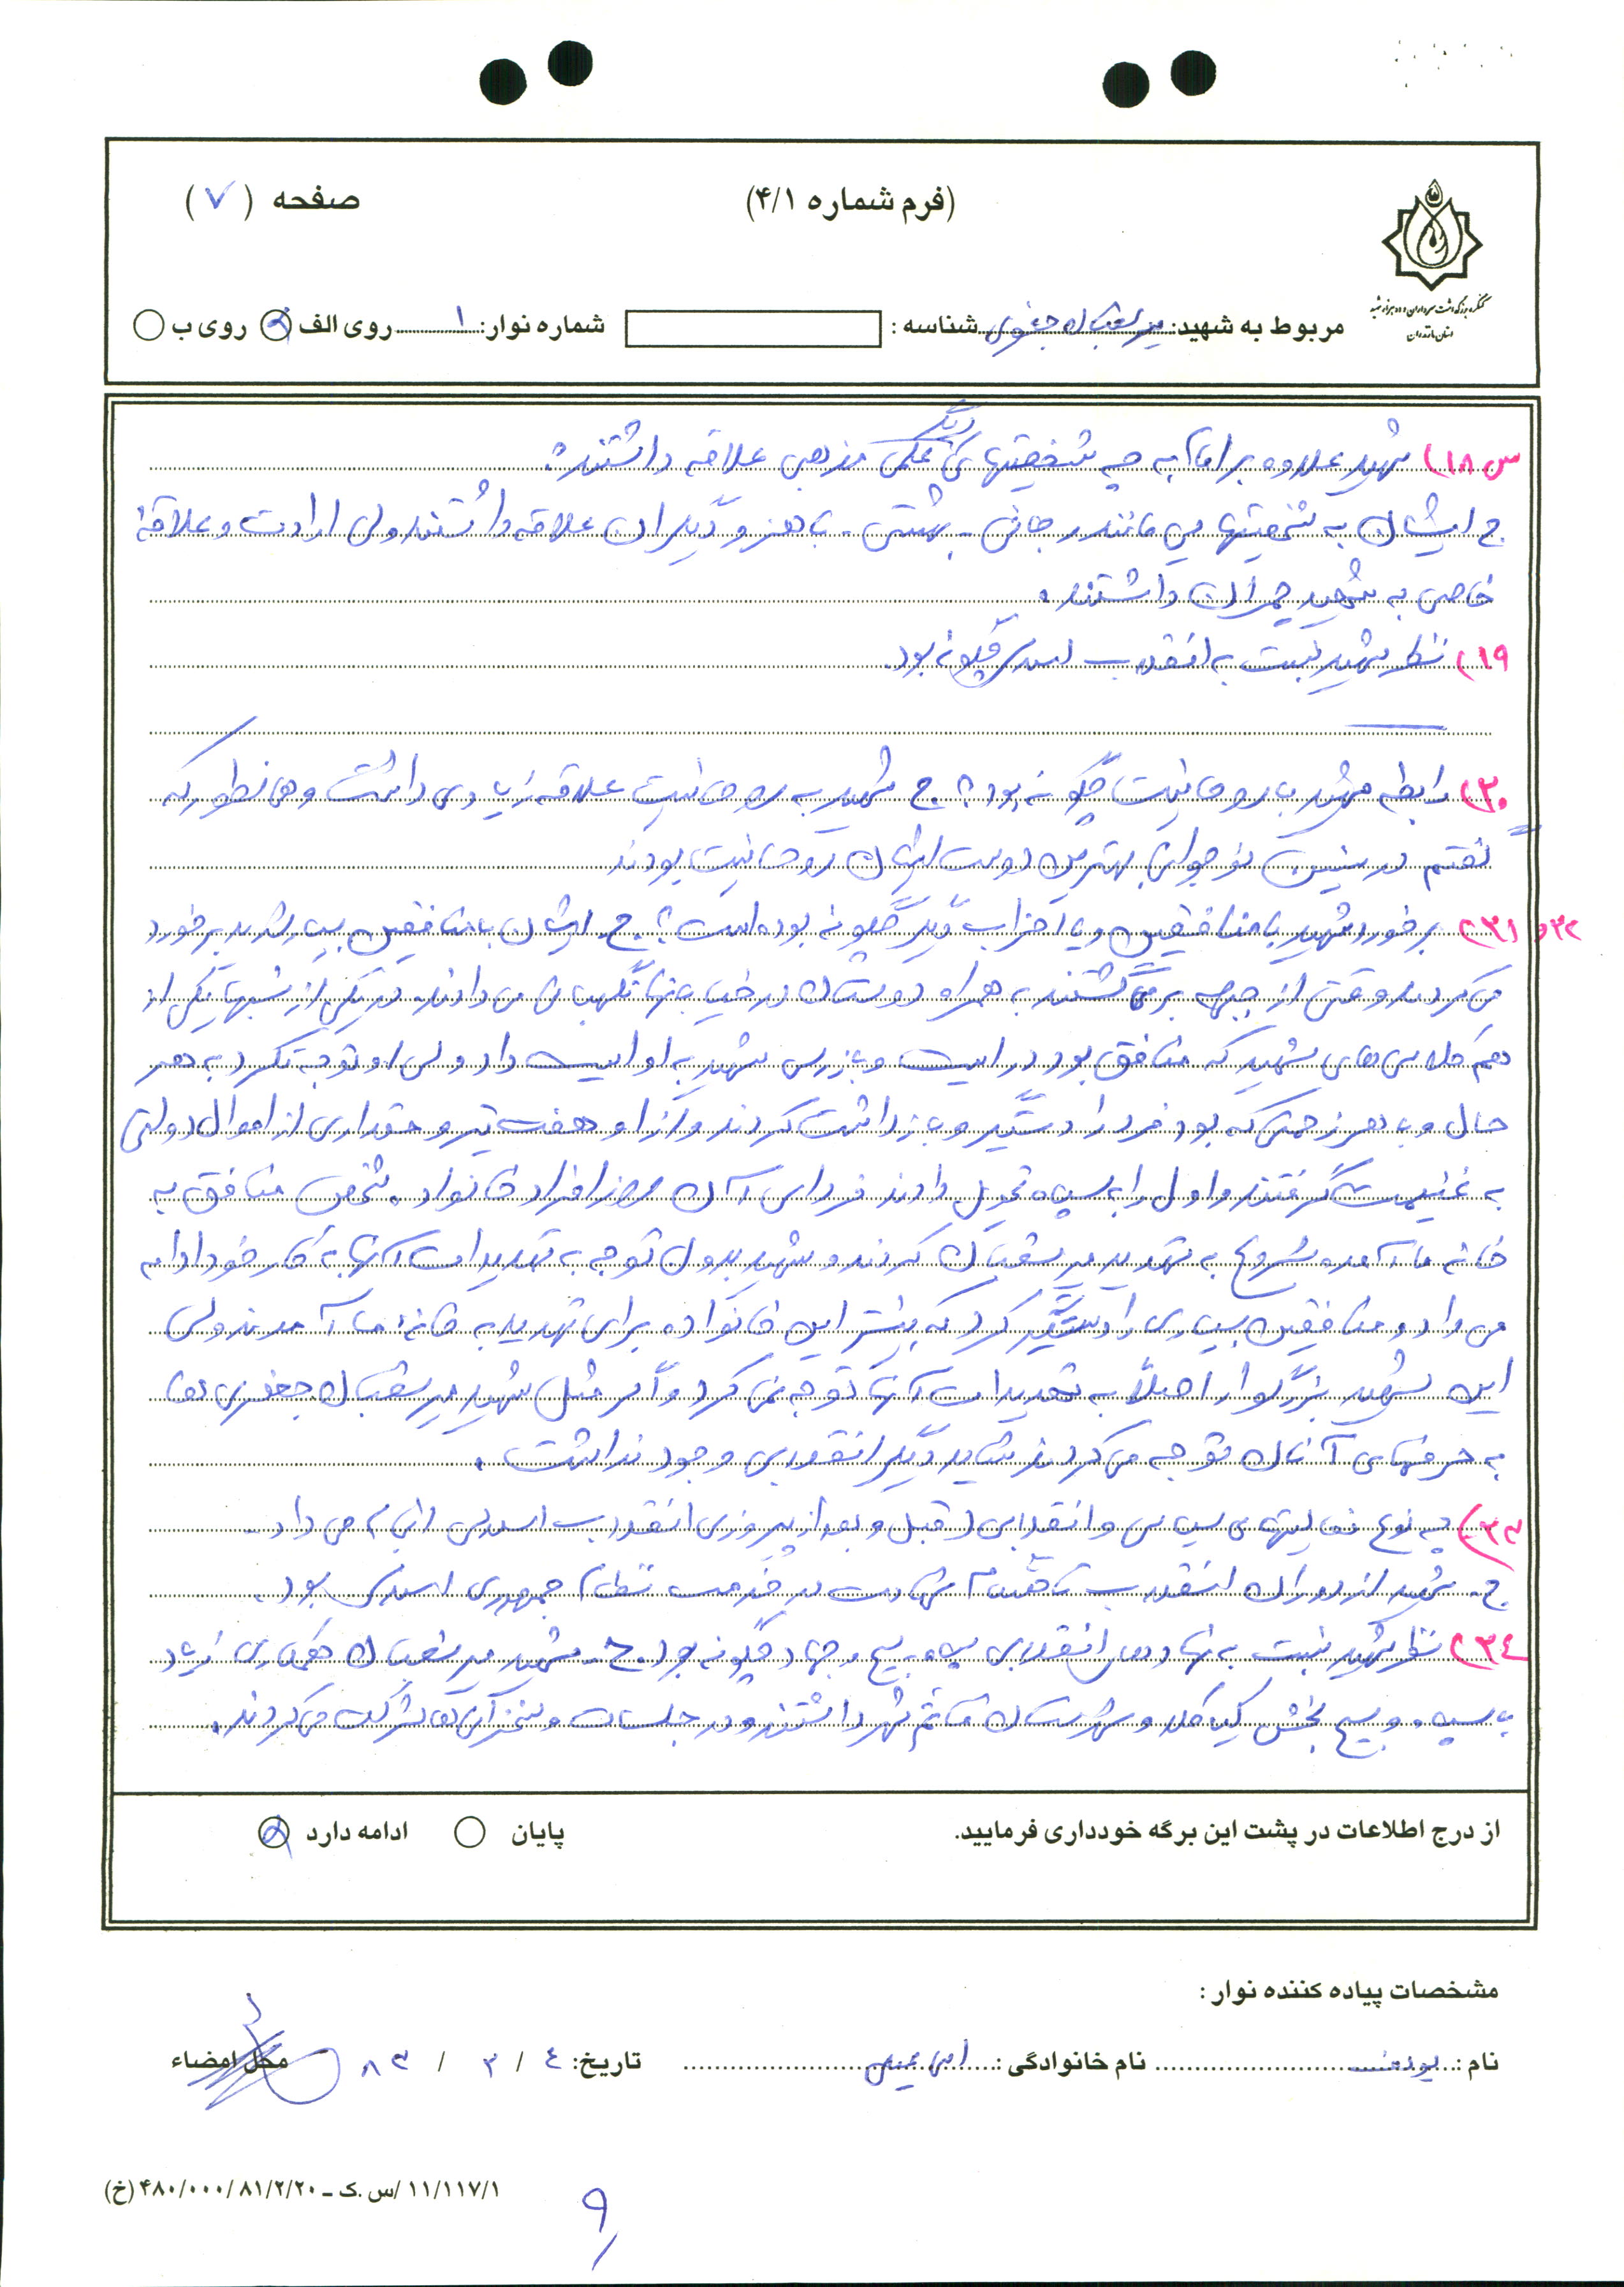 (فرم شماره ۴/۱)
صفحه (۷)
کنگره بزرگداشت سرداران و ده هزار شهید
استان مازندران
مربوط به شهید: میرشعبان جعفری شناسه: شماره نوار: ۱ روی الف روی ب
س ۱۸) شهید علاوه بر امام به چه شخصیتهای دیگر مملکتی مذهبی علاقه داشتند؟
ج ایشان به شخصیتهایی مانند رجائی - بهشتی - باهنر و دیگران علاقه داشتند ولی ارادت و علاقهٔ
خاصی به شهید چمران داشتند.
۱۹) نظر شهید نسبت به انقلاب اسلامی چگونه بود.
۳۰) رابطه شهید با روحانیت چگونه بود؟ ج شهید به روحانیت علاقه زیادی داشت و همانطور که
گفتم در سنین نوجوانی بهترین دوست ایشان روحانیت بودند
۳۱ و ۳۲) برخورد شهید با منافقین و یا احزاب دیگر چگونه بوده است؟ ج. ایشان با منافقین بسیار شدید برخورد
می کردند وقتی از جبهه برمی گشتند به همراه دوستان در خیابانها نگهبانی می دادند. در یکی از شبها یکی از
هم کلاسی های شهید که منافق بود در ایست و بازرسی شهید به او ایست داد ولی او توجه نکرد به هر
حال و با هر زحمتی که بود فرد را دستگیر و بازداشت کردند و از او هفت تیر و مقداری از اموال دولتی
به غنیمت گرفتند و اول را به سپاه تحویل دادند فردای آن روز افراد خانواده شخص منافق به
خانه ما آمده شروع به تهدید میرشعبان کردند و شهید بدون توجه به تهدیدات آنها به کار خود ادامه
می داد و منافقین بسیاری را دستگیر کرد که بیشتر این خانواده برای تهدید به خانهٔ ما آمدند ولی
این شهید بزرگوار اصلاً به تهدیدات آنها توجه نمی کرد و اگر مثل شهید میرشعبان جعفری ها
به حرفهای آنان توجه می کردند شاید دیگر انقلابی وجود نداشت.
۳۳) چه نوع فعالیتهای سیاسی و انقلابی قبل و بعد از پیروزی انقلاب اسلامی انجام می داد
ج. شهید از دوران انقلاب تا هنگام شهادت در خدمت نظام جمهوری اسلامی بود.
۳۴) نظر شهید نسبت به نهادهای انقلابی سپاه بسیج و جهاد چگونه بود. ج- شهید میرشعبان همکاری زیاد
با سپاه و بسیج بخش کیاکلا و شهرستان قائم شهر داشتند و در جلسات و سخنرانی ها شرکت می کردند.
از درج اطلاعات در پشت این برگه خودداری فرمایید.
پایان ادامه دارد
مشخصات پیاده کننده نوار:
نام: نام خانوادگی: تاریخ: ۴ / ۳ / ۸۳ محل امضاء
۱۱/۱۱۷/۱ /س.ک ـ ۴۸۰/۰۰۰/۸۱/۲/۲۰ (خ)
۹